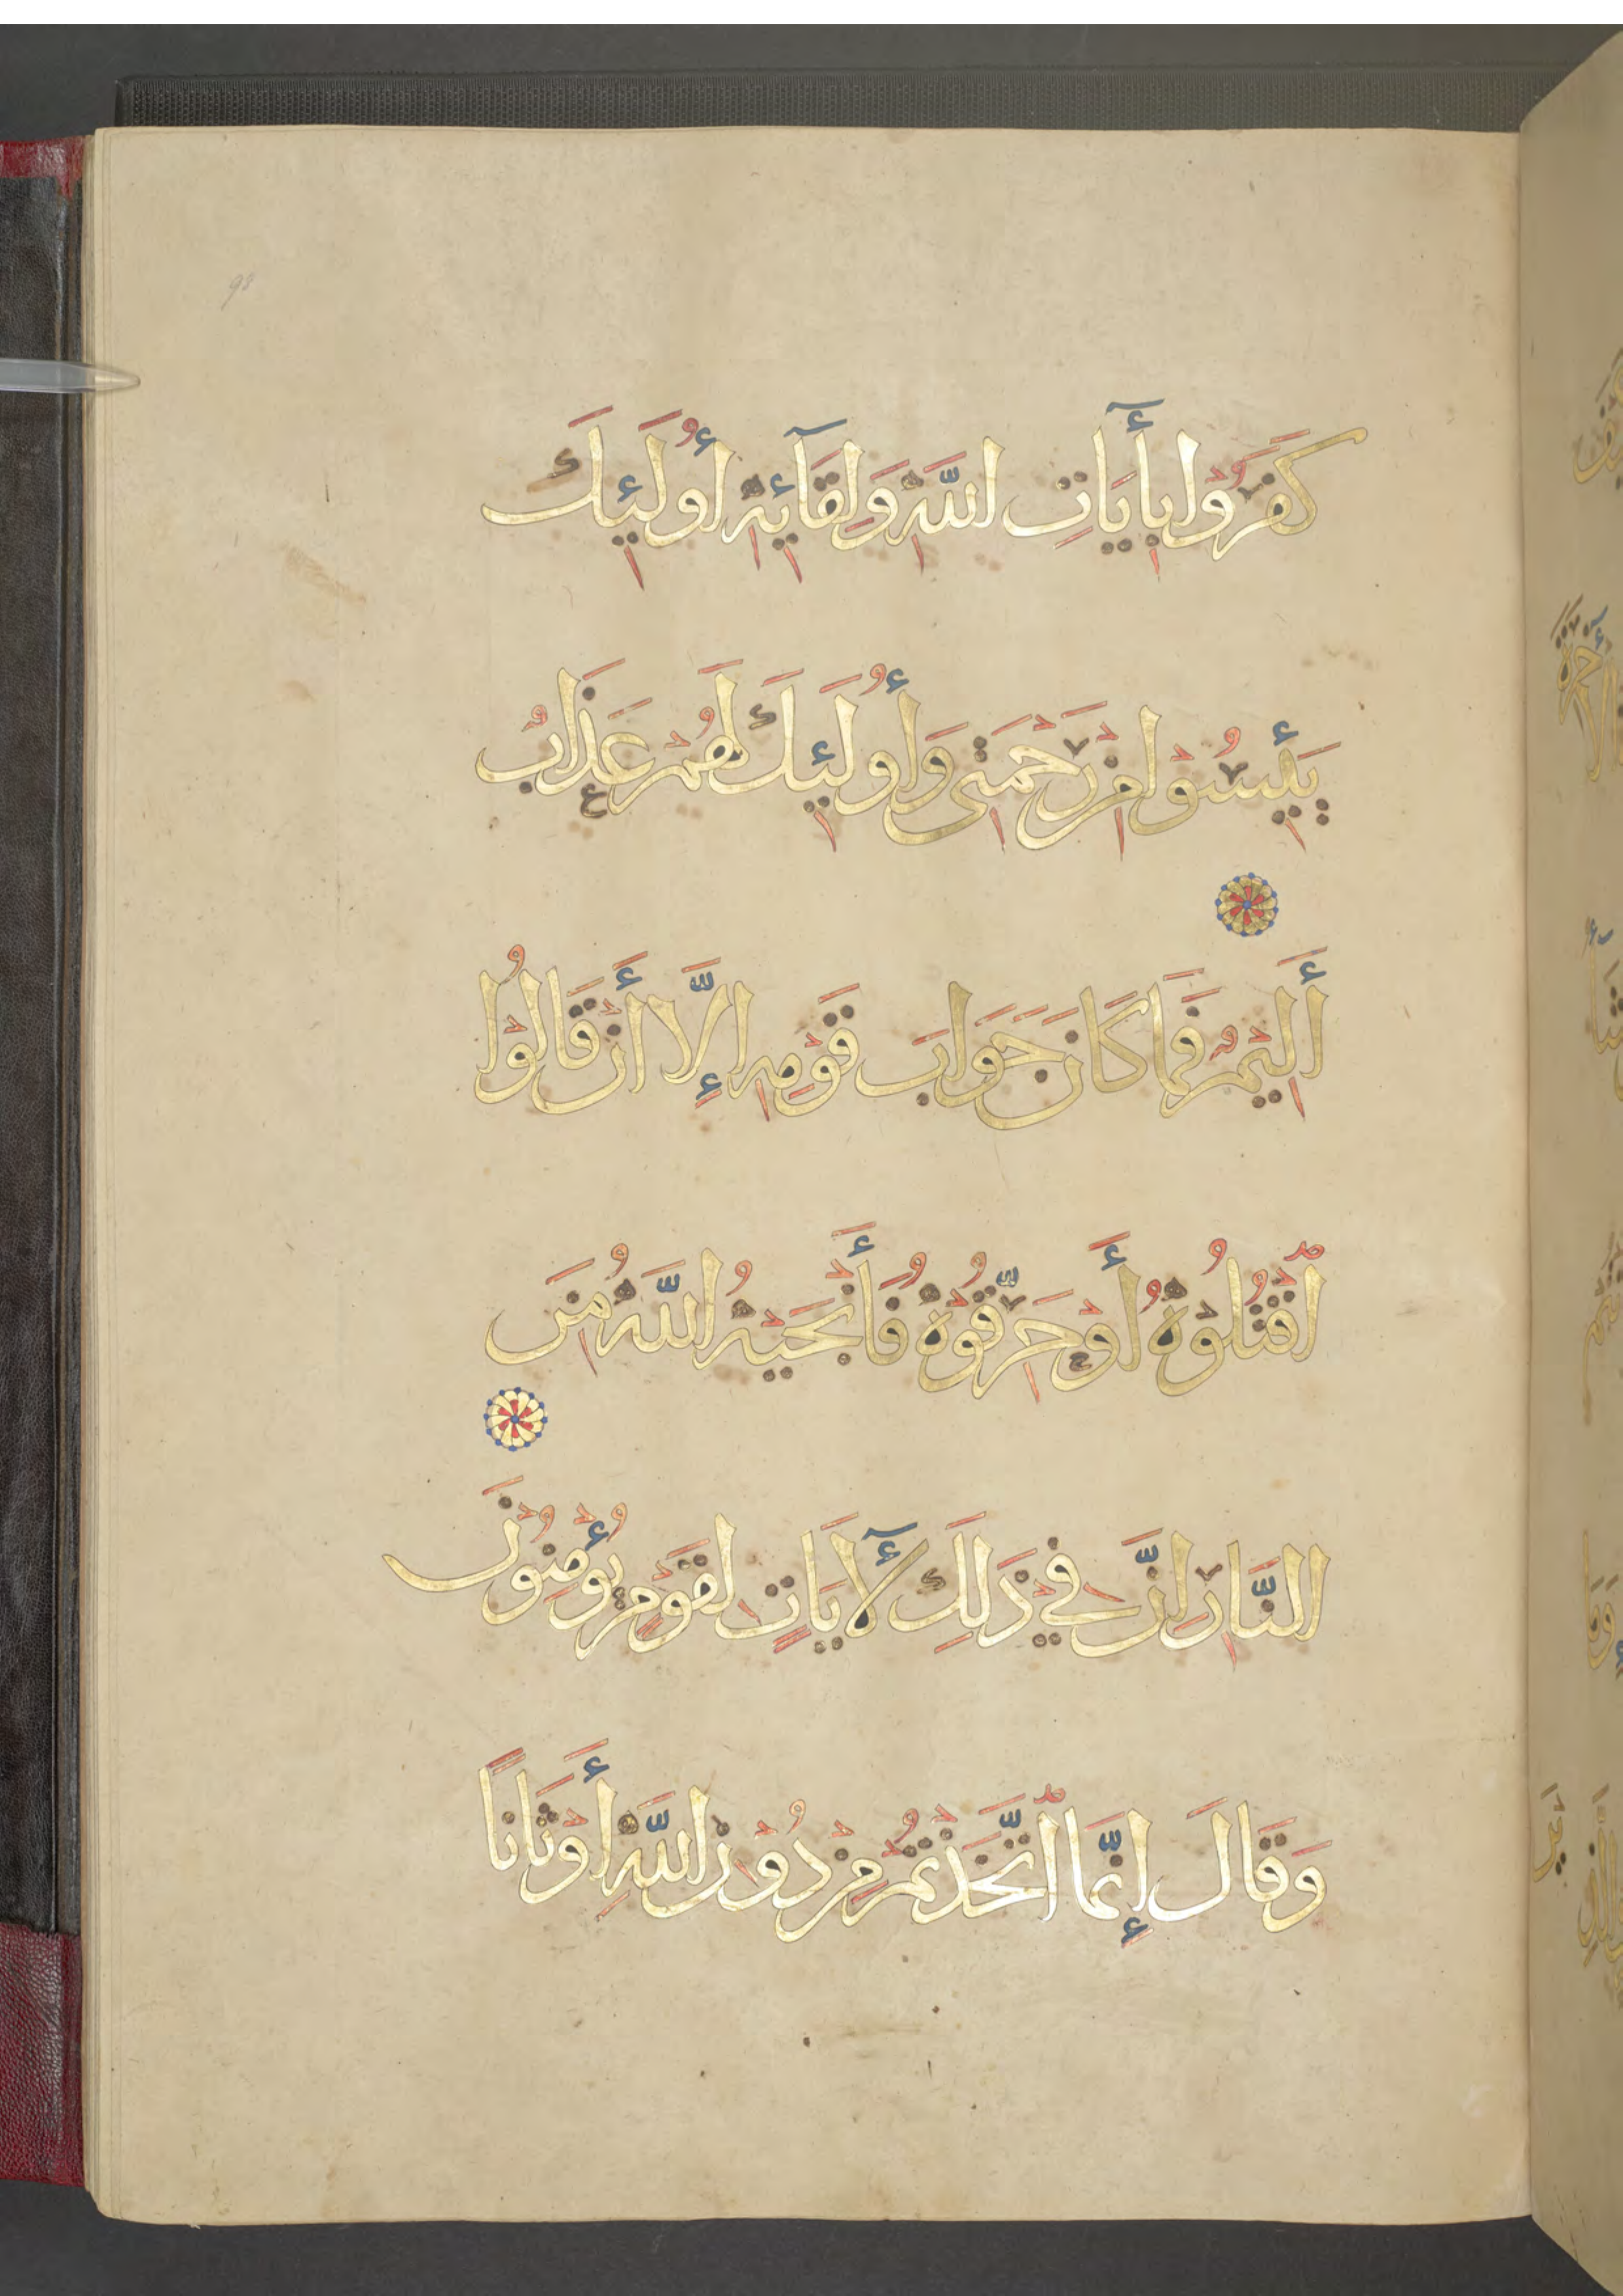 98
كَفَرُوْا بِأٓيَاتِ اللّٰهِ وَلِقَآئِهِ أُولَئِكَ
يَئِسُوْا مِنْ رَحْمَتِى وَأُولَئِكَ لَهُمْ عَذَابٌ
أَلِيْمٌ فَمَا كَانَ جَوَابَ قَوْمِهِ إِلَّا أَنْ قَالُوْا
اقْتُلُوْهُ أَوْ حَرِّقُوْهُ فَأَنْجَيهُ اللّٰهُ مِنَ
النَّارِ إِنَّ فِيْ ذَلِكَ لَأٓيَاتٍ لِقَوْمٍ يُؤْمِنُوْنَ
وَقَالَ إِنَّمَا اتَّخَذْتُمْ مِنْ دُوْنِ اللّٰهِ أَوْثَانًا